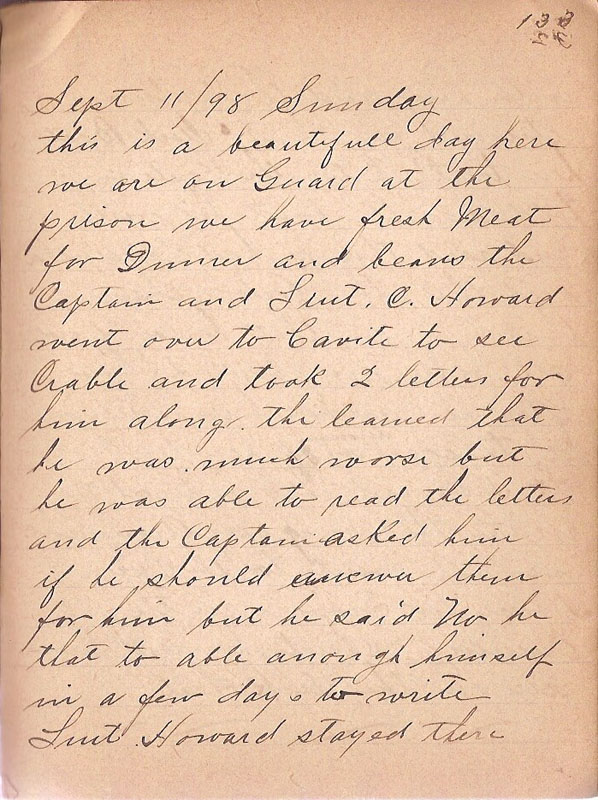 133
Sept 11/98 Sunday
this is a beautifull day here
we are on Guard at the
prison we have fresh Meat
for Dinner and beans the
Captain and Liut. C. Howard
went over to Cavite to see
Crable and took 2 letters for
him along. the learned that
he was much worse but
he was able to read the letters
and the Captain asked him
if he should answer them
for him but he said No he
that to able anough himself
in a few days to write
Liut Howard stayed there